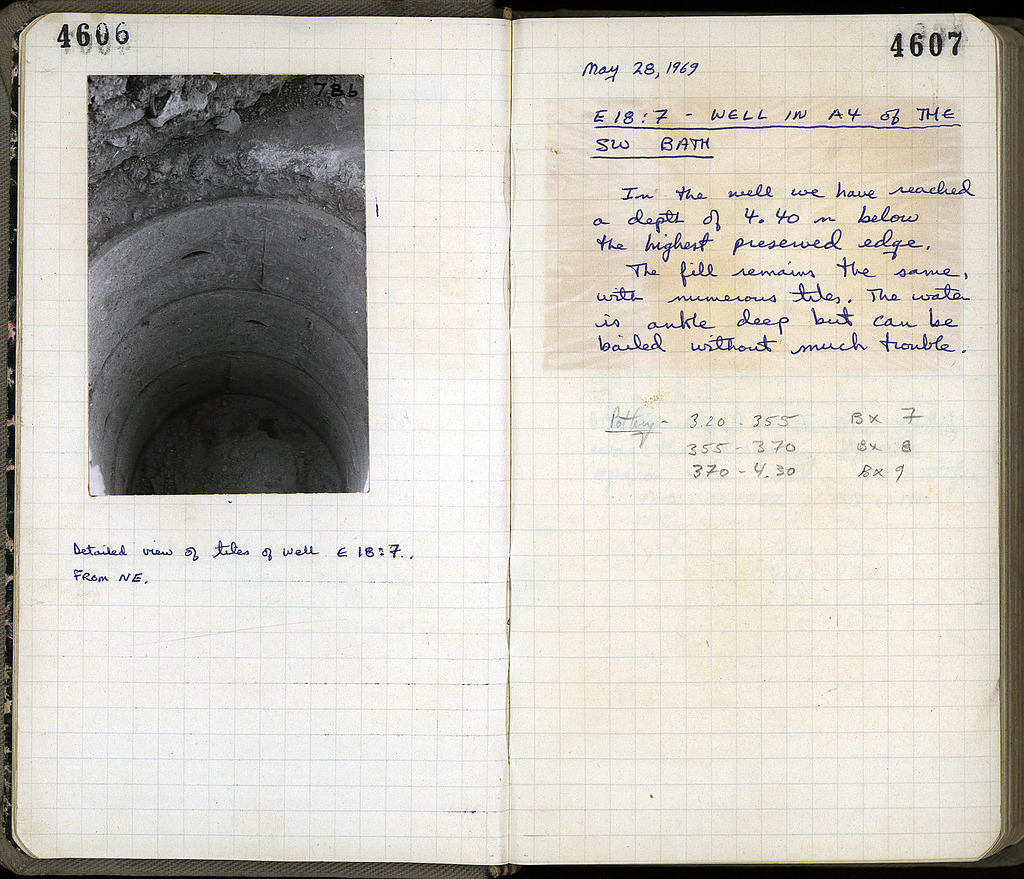 4606
786
Detailed view of tiles of well E 18:7.
From NE.
4607
May 28, 1969
E 18:7 - WELL IN A4 of THE
SW BATH
In the well we have reached
a depth of 4.40 m below
the highest preserved edge.
The fill remains the same,
with numerous tiles. The water
is ankle deep but can be
bailed without much trouble.
Pottery - 3.20 - 355 Bx 7
355 - 370 Bx 8
370 - 4.30 Bx 9